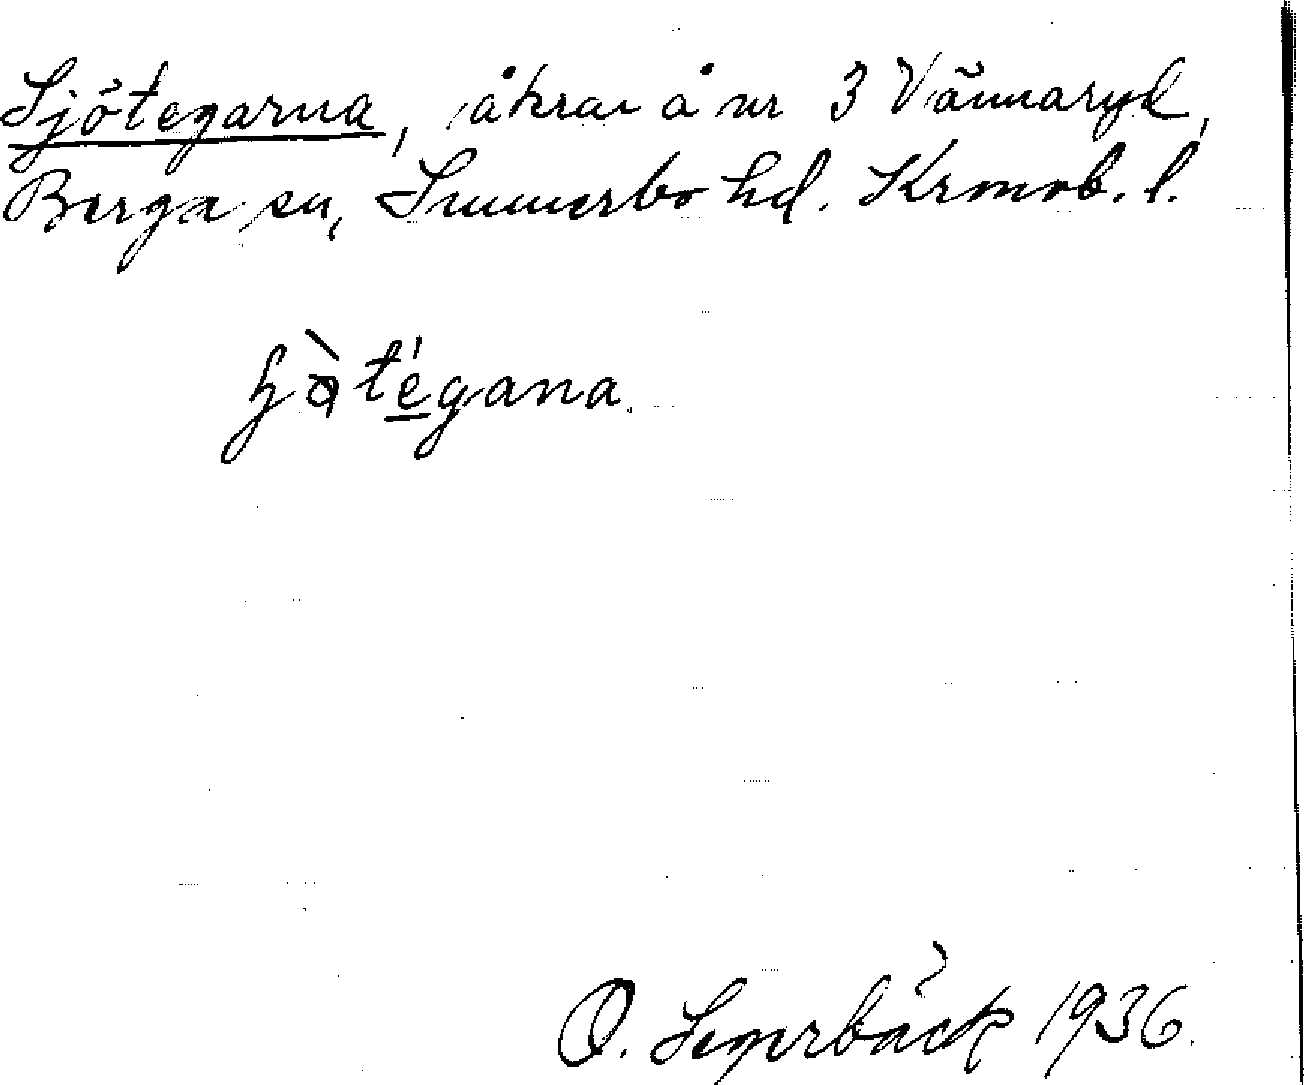 Sjötegarna, åkrar å nr 3 Vännaryd,
Berga sn, Sunnerbo hd. Kronob. l.
ɧòtégana.
O. Segerbäck 1936.